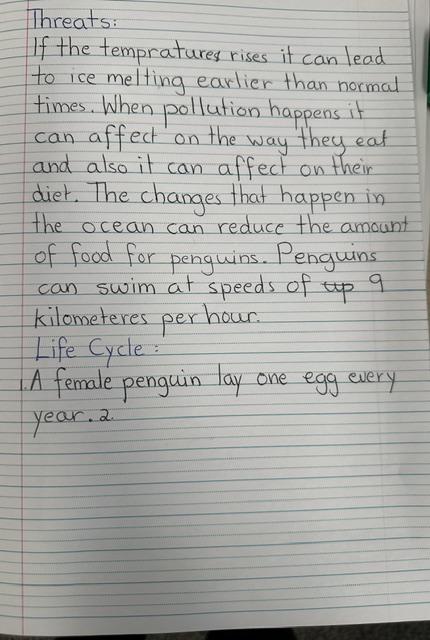 Threats:
If the tempratures rises it can lead
to ice melting earlier than normal
times. When pollution happens it
can affect on the way they eat
and also it can affect on their
diet. The changes that happen in
the ocean can reduce the amount
of food for penguins. Penguins
can swim at speeds of up 9
kilometeres per hour.
Life Cycle:
1. A female penguin lay one egg every
year. 2.